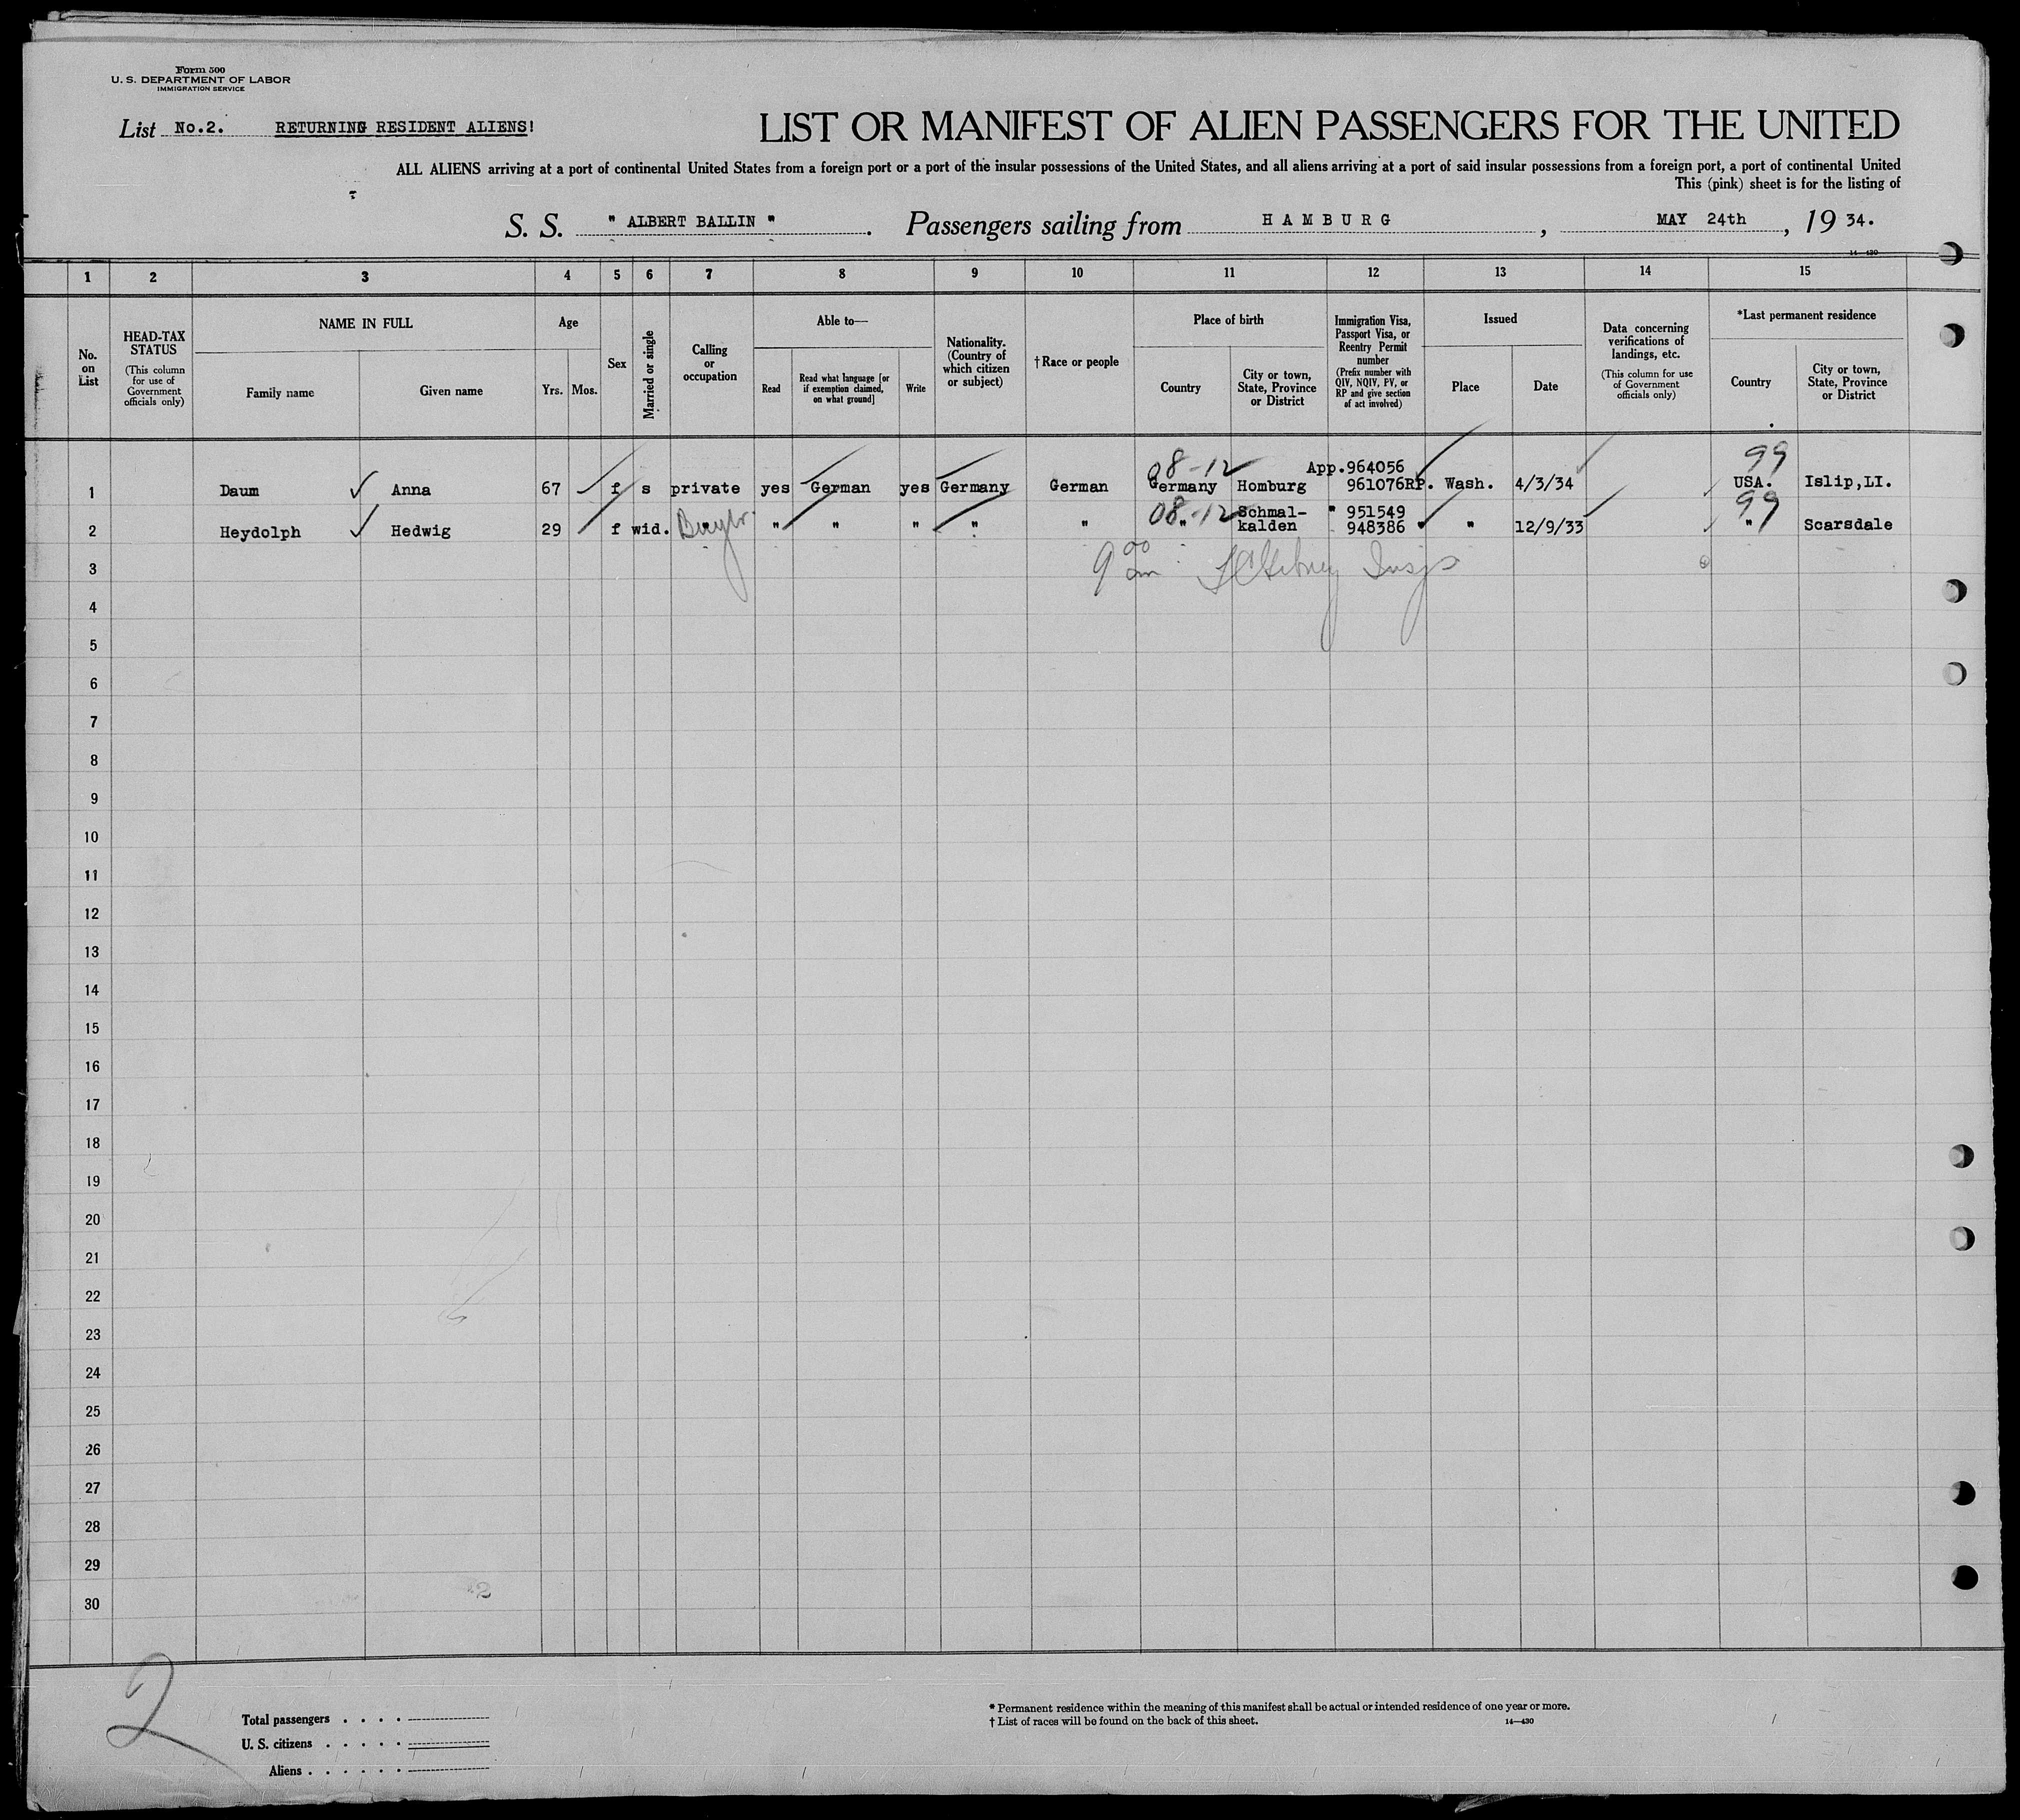 Form 500
U. S. DEPARTMENT OF LABOR
IMMIGRATION SERVICE
List No.2. RETURNING RESIDENT ALIENS!
LIST OR MANIFEST OF ALIEN PASSENGERS FOR THE UNITED
ALL ALIENS arriving at a port of continental United States from a foreign port or a port of the insular possessions of the United States, and all aliens arriving at a port of said insular possessions from a foreign port, a port of continental United
This (pink) sheet is for the listing of
S. S. " ALBERT BALLIN ". Passengers sailing from HAMBURG, MAY 24th, 19 34.
14—430
1 2 3 4 5 6 7 8 9 10 11 12 13 14 15
No. on List
HEAD-TAX STATUS
(This column for use of Government officials only)
NAME IN FULL
Family name
Given name
Age
Yrs. Mos.
Sex
Married or single
Calling or occupation
Able to—
Read
Read what language [or if exemption claimed, on what ground]
Write
Nationality. (Country of which citizen or subject)
†Race or people
Place of birth
Country
City or town, State, Province or District
Immigration Visa, Passport Visa, or Reentry Permit number
(Prefix number with QIV, NQIV, PV, or RP and give section of act involved)
Issued
Place
Date
Data concerning verifications of landings, etc.
(This column for use of Government officials only)
*Last permanent residence
Country
City or town, State, Province or District
08-12 App.964056 99
1 Daum ✓ Anna 67 f s private yes German yes Germany German Germany Homburg 961076RP. Wash. 4/3/34 USA. Islip,LI.
08-12 Schmal- " 951549 99
2 Heydolph ✓ Hedwig 29 f wid. " " " " " " " kalden 948386 " " 12/9/33 " Scarsdale
3 9 00 am Insp
4
5
6
7
8
9
10
11
12
13
14
15
16
17
18
19
20
21
22
23
24
25
26
27
28
29
30
2
2
Total passengers . . . .
U. S. citizens . . . . .
Aliens . . . . . .
* Permanent residence within the meaning of this manifest shall be actual or intended residence of one year or more.
† List of races will be found on the back of this sheet.
14—430